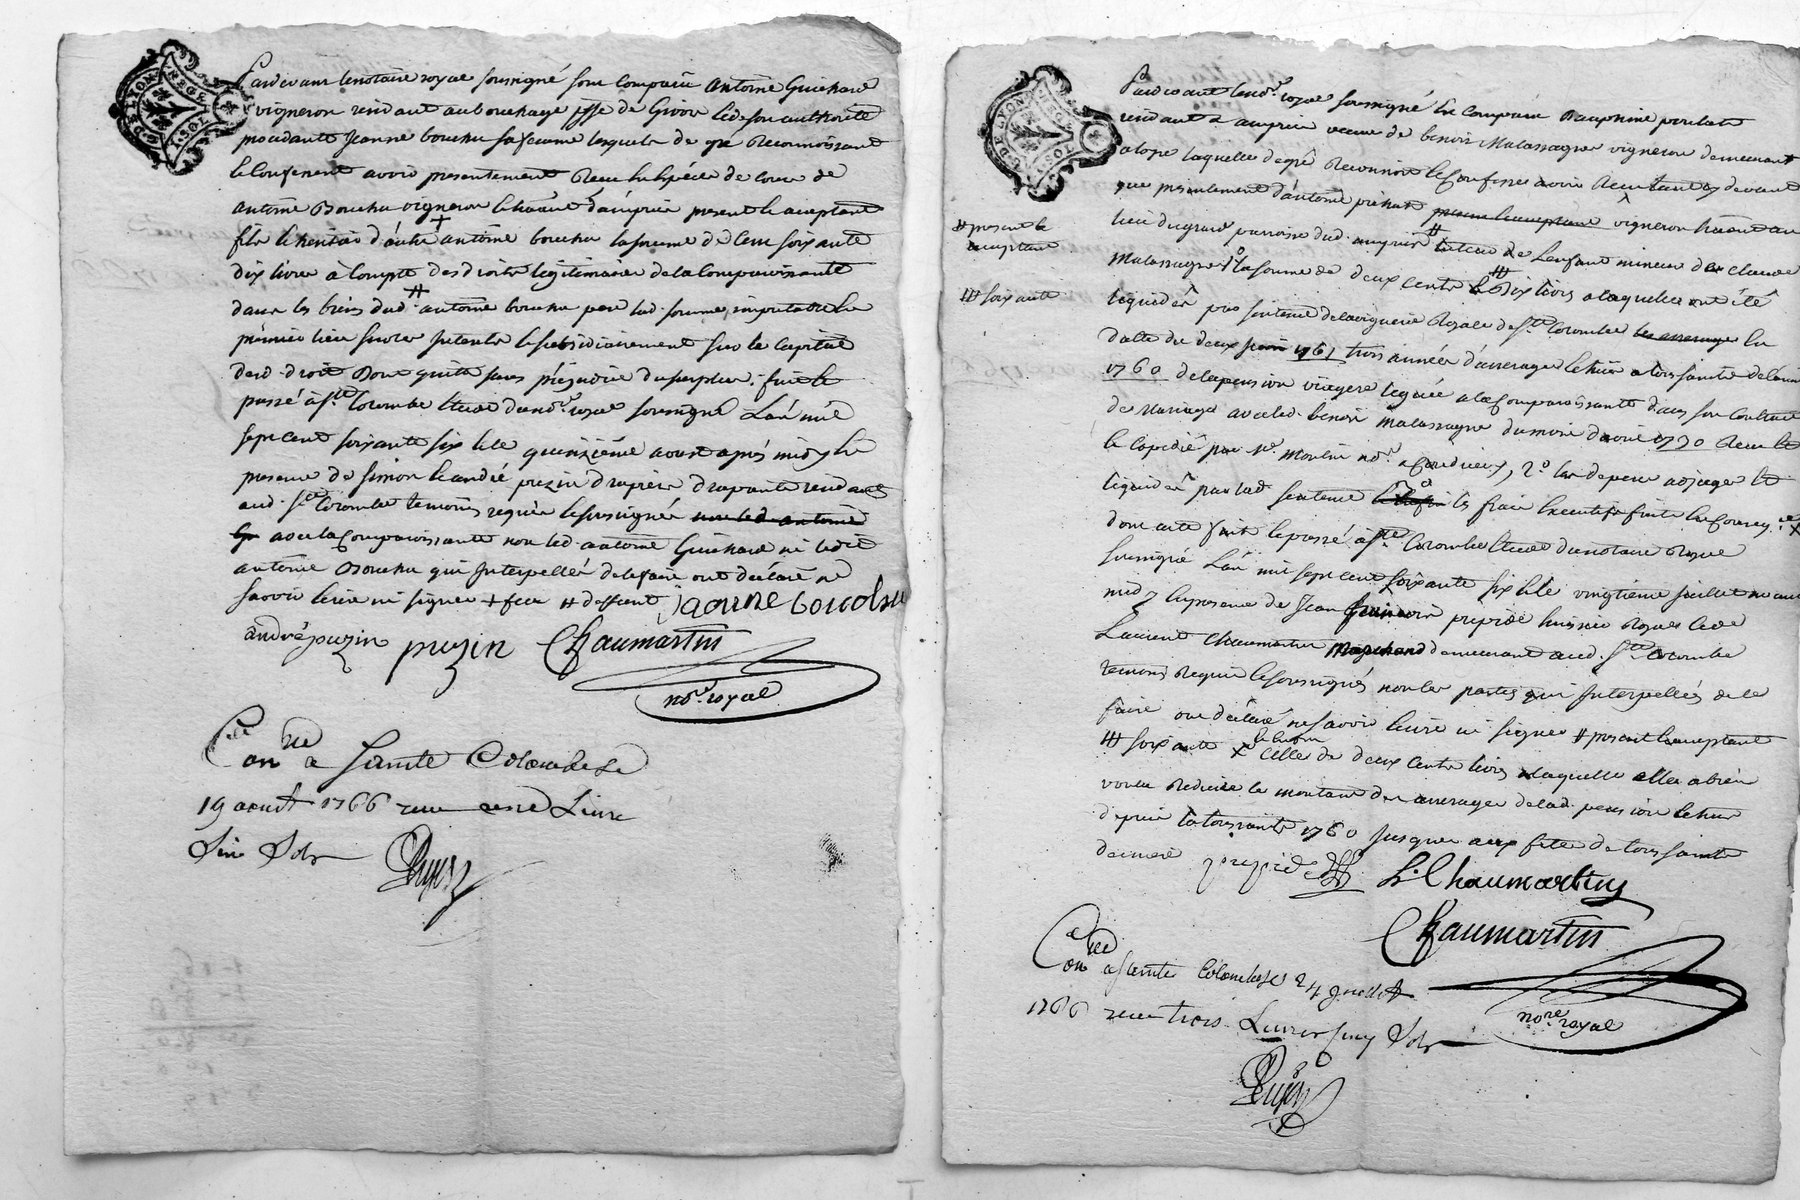 G. DE LYON
Pardevant le notaire royal soussigné sont comparu antoine Guichard
vigneron residant au bouchage de Givors et de son authorité
procedante Jeanne bouchu sa femme lesquels de gré Reconnoissent
et Confessent avoir presentement Receu en Espèces de cours de
antoine Bouchu vigneron et habitant d'ampuis present et acceptant
fils et heritier d'autre + antoine bouchu la somme de cent soixante
dix livres à Compte des droits legitimaires de la Comparoissante
dans les biens dud. # antoine bouchu pere lad. somme imputable en
premier lieu sur les interets et subsidiairement sur le capital
desd. droits Dont quitte sans préjudice du surplus. fait et
passé à Ste. Colombe Etude du nore. royal soussigné L'an mil
sept cent soixante six et le quinzième aoust après midy en
presence de Simon et andré puzin drapiers drapants residants
aud. Ste. Colombe temoins requis et soussignés non led. antoine
avec la Comparoissante non led. antoine Guichard ni ledit
antoine Bouchu qui Interpellés de le faire ont déclaré ne
savoir écrire ni signer + feu # deffunt jaonne bouchu
andré puzin puzin Chaumartin
nore. royal
Conlle. a Sainte Colombe Le
19 aoust 1766 receu une Livre
Six Sols
G. DE LYON
Pardevant le nore. royal soussigné Est comparue Dauphine
residante a ampuis veuve de benoit Malassagne vigneron demeurant
laquelle de gré Reconnoit et Confesse avoir Receu
presentement d'antoine pichat present et acceptant vigneron habitant au
lieu du parroisse dud. ampuis # tuteur de L'enfant mineur de Claude
# present et
acceptant
Malassagne 1o. la somme de deux cents # Dix livres a laquelle ont été
# soixante
liquidés par sentence de la viguerie Royale de Ste. Colombe en
datte du deux juin 1761 trois années d'arrerages échus a la toussaints de l'année
1760 de la pension viagere leguée a la Comparoissante dans son Contract
de Mariage avec led. benoit Malassagne du mois d'avril 1730 Receu et
Expedié par Me. Moulin nore. a Condrieux, 2o. les depens adjugés et
liquidés par lad. sentence 3o. les frais Executifs faits en Consequence X
dont acte fait et passé a Ste. Colombe Etude du notaire Royal
soussigné L'an mil sept cent soixante six et le vingtième juillet avant
midy En presence de Jean huissier Royal et de
Laurent Chaumartin Marchand demeurant aud. Ste. Colombe
temoins Requis et soussignés non les parties qui Interpellées de le
faire ont déclaré ne savoir écrire ni signer # present et acceptant
# soixante X celle de deux cents livres a laquelle elle a bien
voulu Reduire le montant des arrerages de lad. pension échus
depuis la toussaints 1760 jusques aux fêtes de toussaints
derniere L. Chaumartin
Chaumartin
nore. royal
Conlle. a Sainte Colombe le 24 Juillet
1766 receu trois Livres cinq Sols